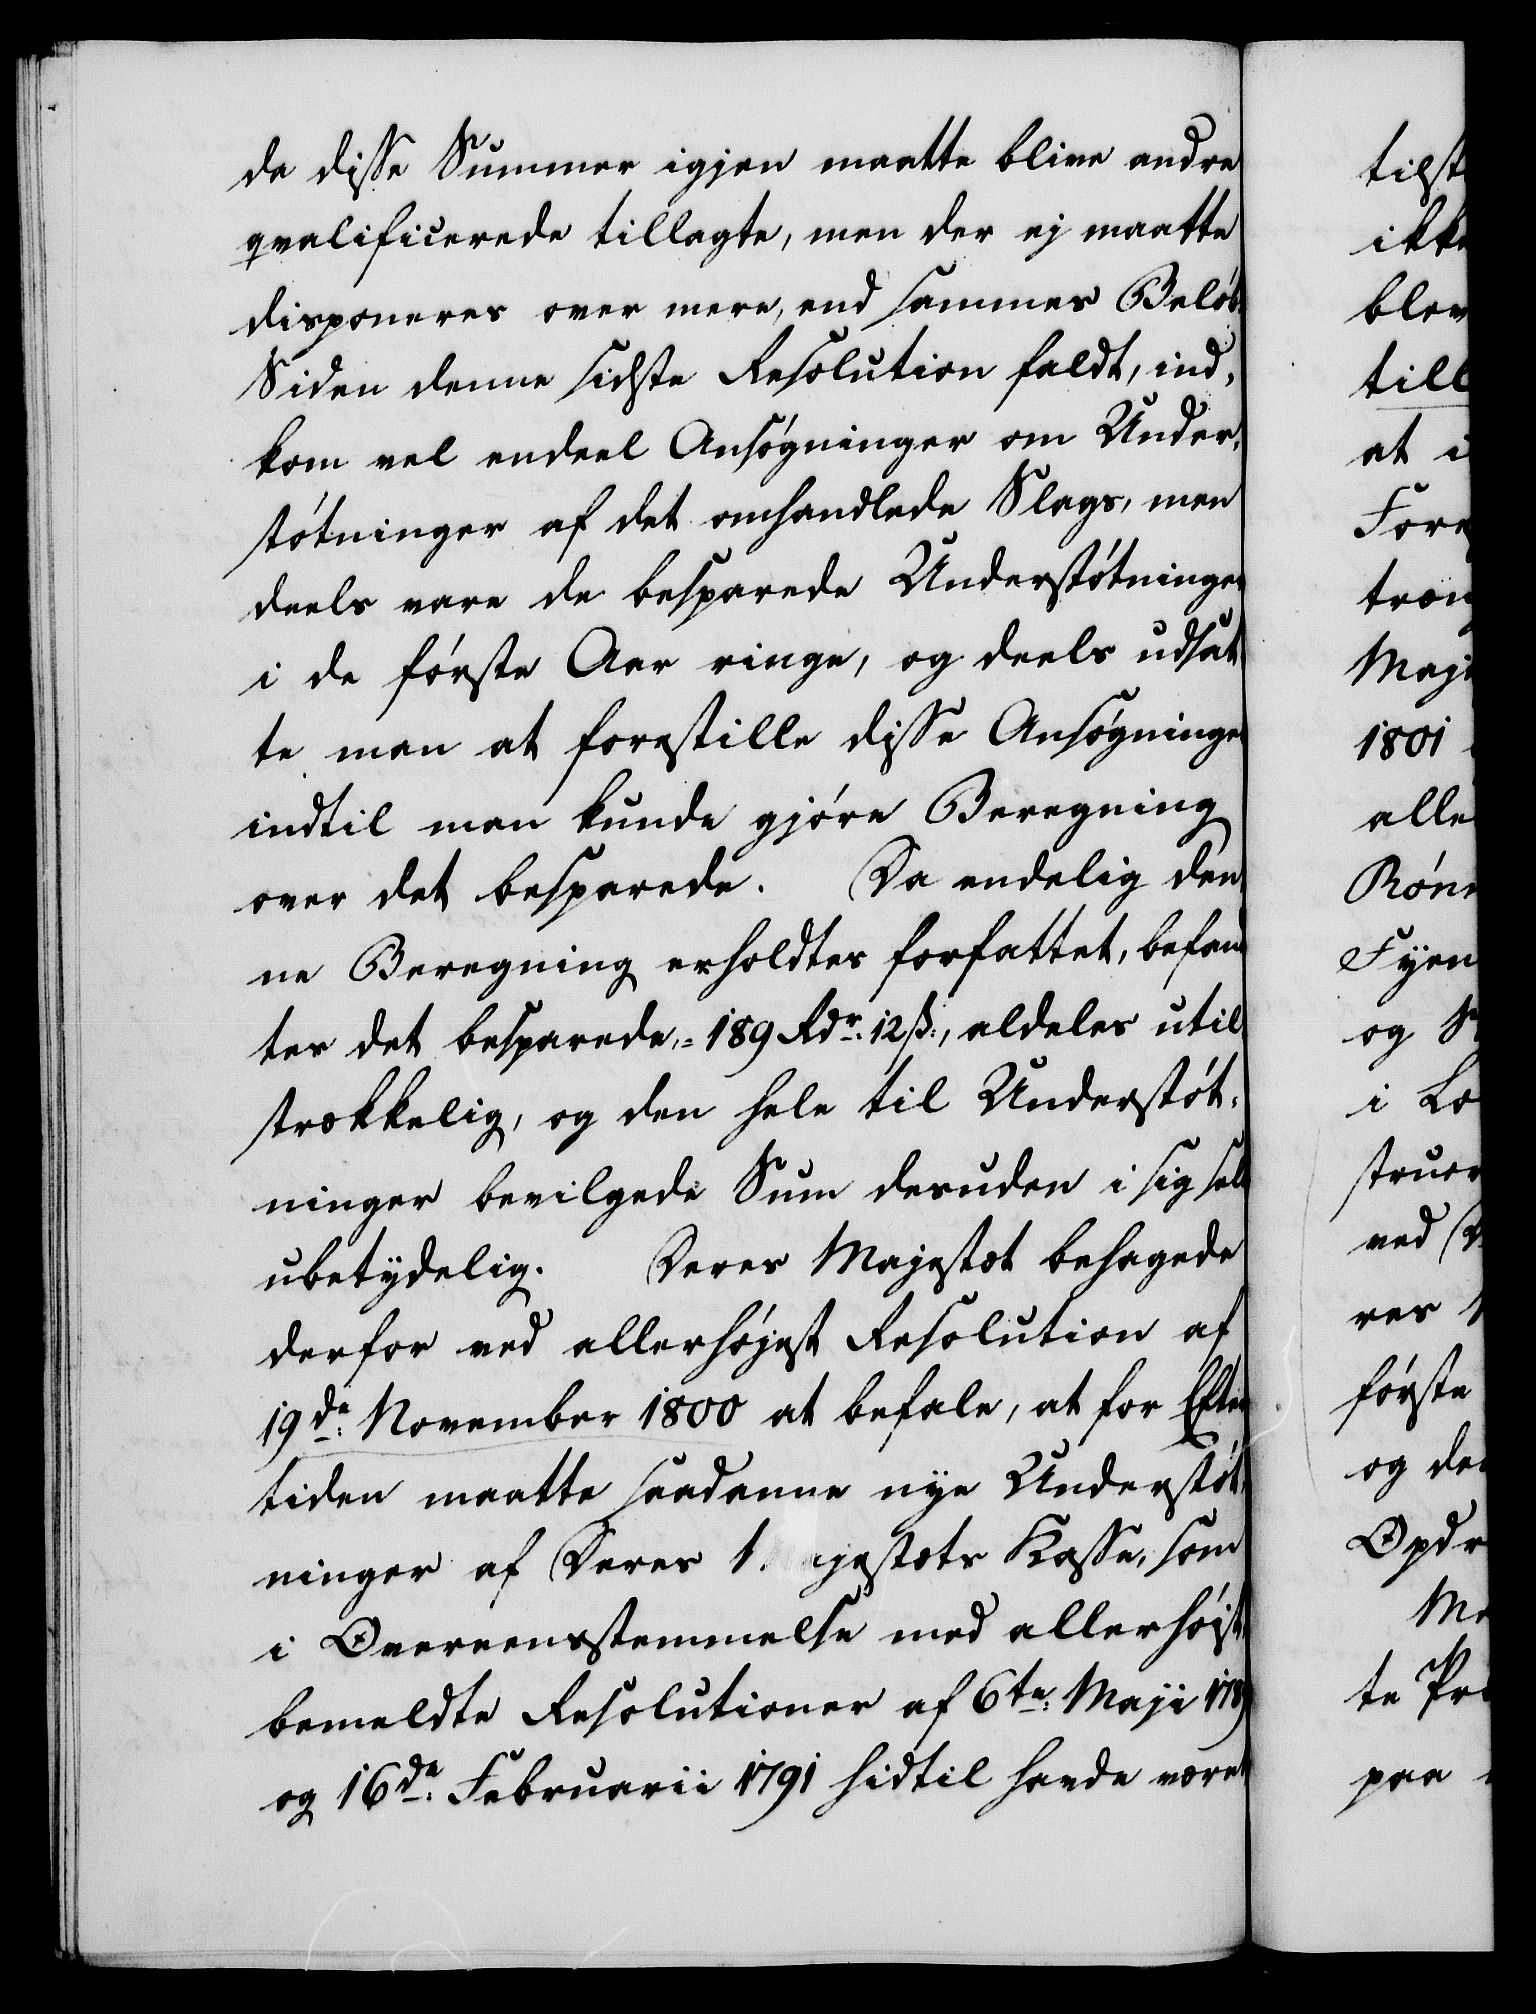 da disse Summer igjen maatte blive andre
qvalificerede tillagte, men der ej maatte
disponeres over mere, end sammes Beløb.
Siden denne sidste Resolution faldt, ind-
kom vel endeel Ansøgninger om Under-
støtninger af det omhandlede Slags, men
deels vare de besparede Understøtninger
i de første Aar ringe, og deels udsat
te man at forestille disse Ansøgninger
indtil man kunde gjøre Beregning
over det besparede. Da endelig den
ne Beregning erholdtes forfattet, befand
tes det besparede, = 189 Rdr. 12 ß:, aldeles util
strækkelig, og den hele til Understøt-
ninger bevilgede Sum desuden i sig selv
ubetydelig. Deres Majestæt behagede
derfor ved allerhøjest Resolution af
19de: November 1800 at befale, at for Efter
tiden maatte saadanne nye Understøt-
ninger af Deres Majestæts Kasse, som
i Overeensstemmelse med allerhøjst
bemeldte Resolutioner af 6te: Maji 1789
og 16de: Februarii 1791 hidtil havde været
tilst
ikke
blev
till
at i
Fore
træn
Maj
1801
alle
Rønn
Fyen
og
i Lo
struer
ved
res
første
og de
Opdr
Ma
te Pr
paa